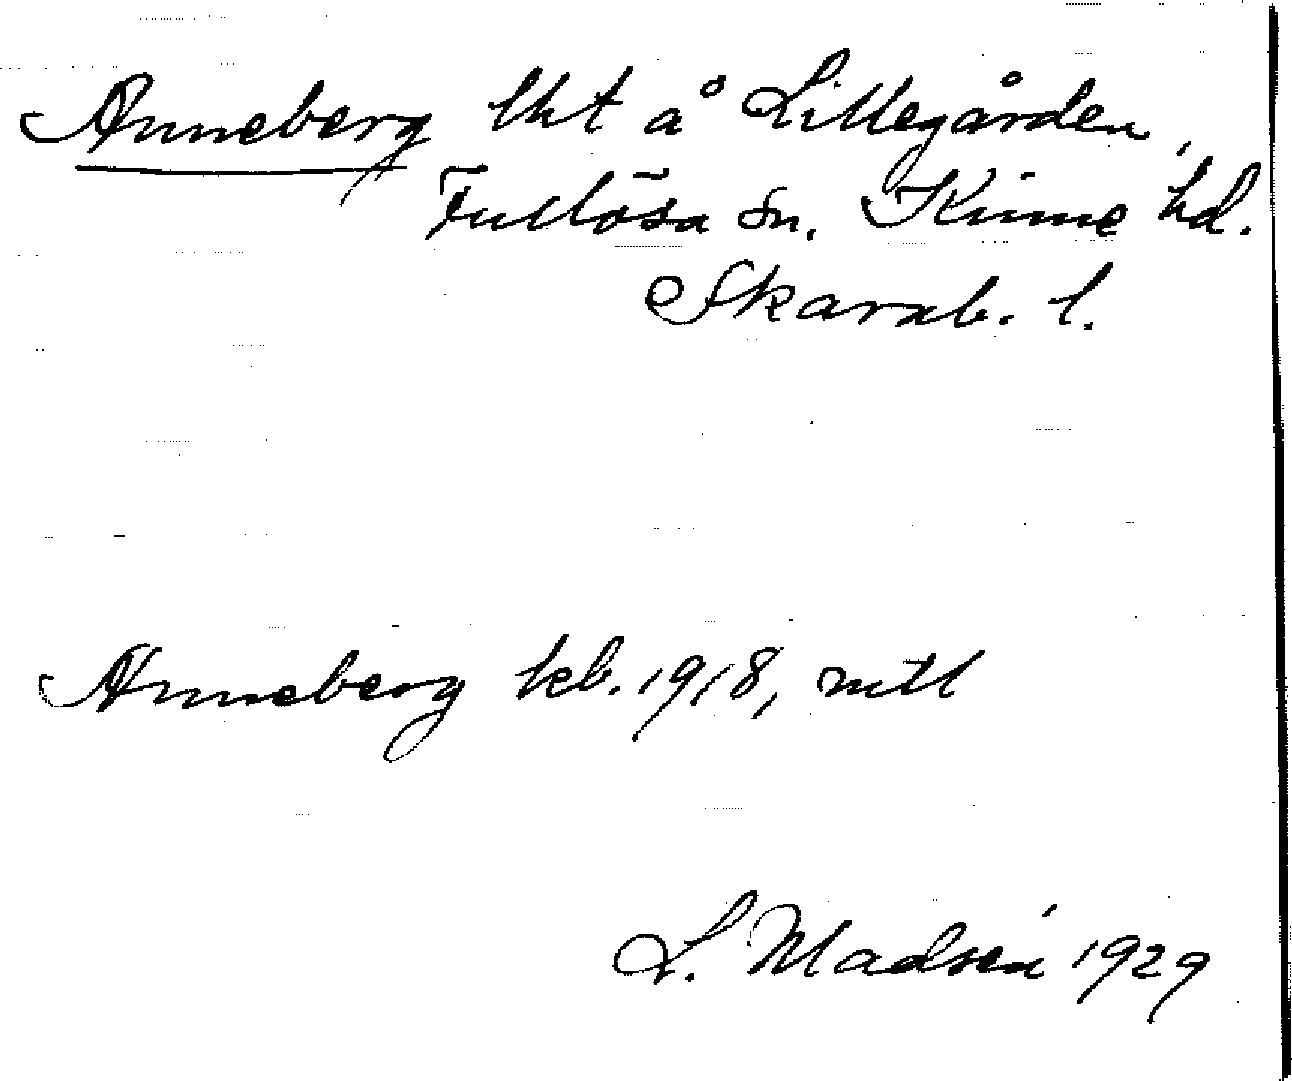 Anneberg lht å Lillegården,
Fullösa sn. Kinne hd.
Skarab. l.
Anneberg kb. 1918, mtl
L. Madsén 1929